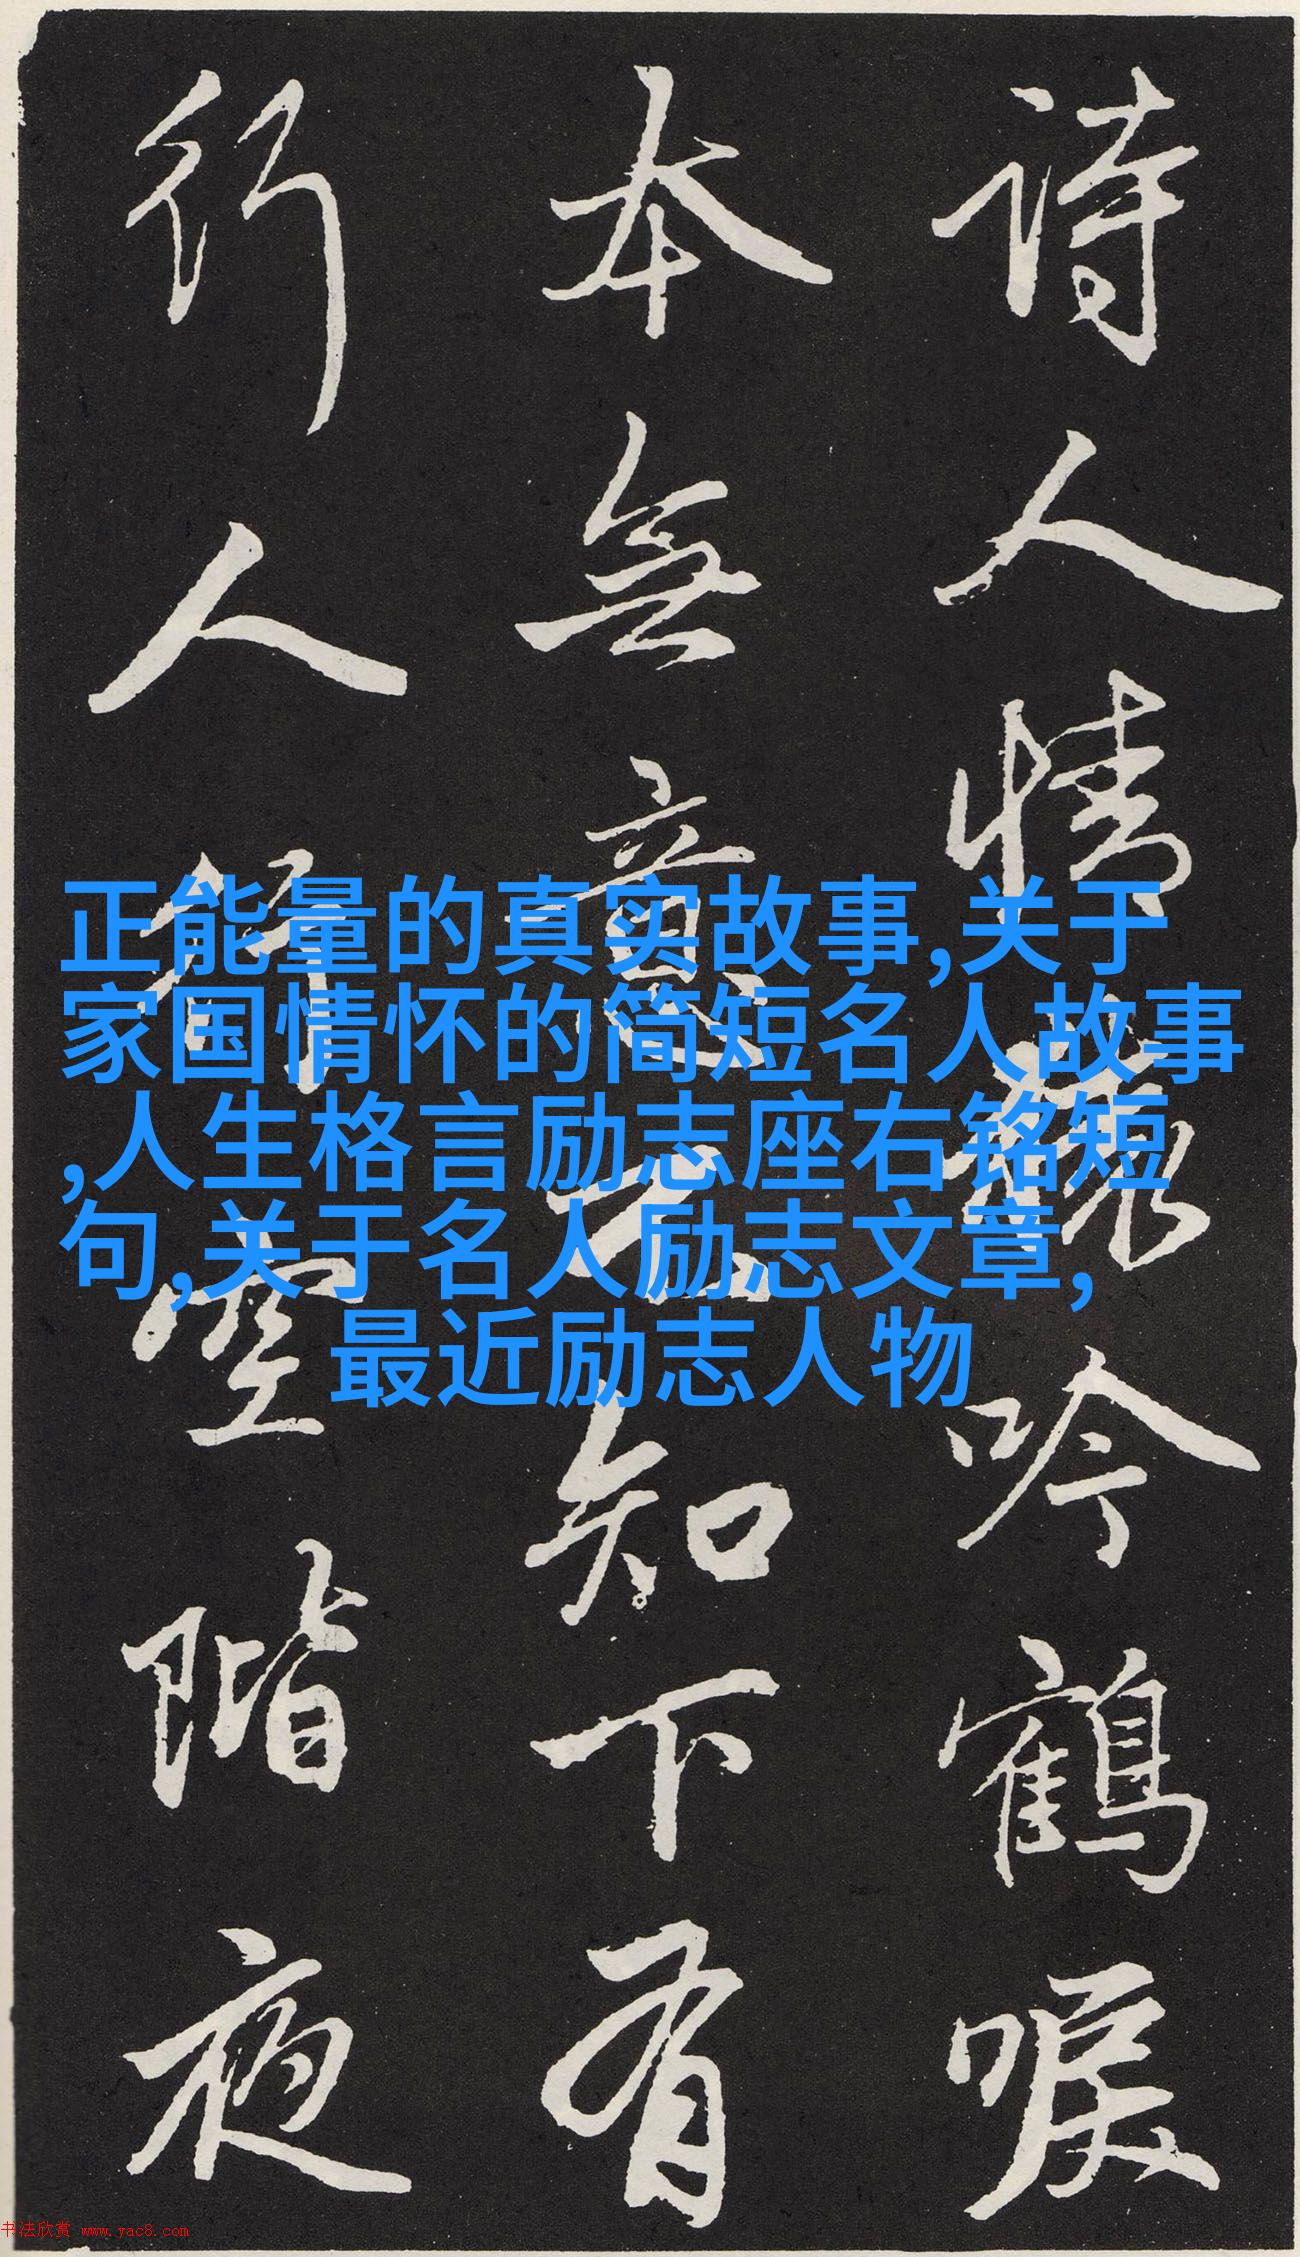 詩人情猿吟鶴唳
本無意不知下有
行人行空階夜
正能量的真实故事,关于
家国情怀的简短名人故事
,人生格言励志座右铭短
句,关于名人励志文章,
最近励志人物
书法欣赏 www.yac8.com